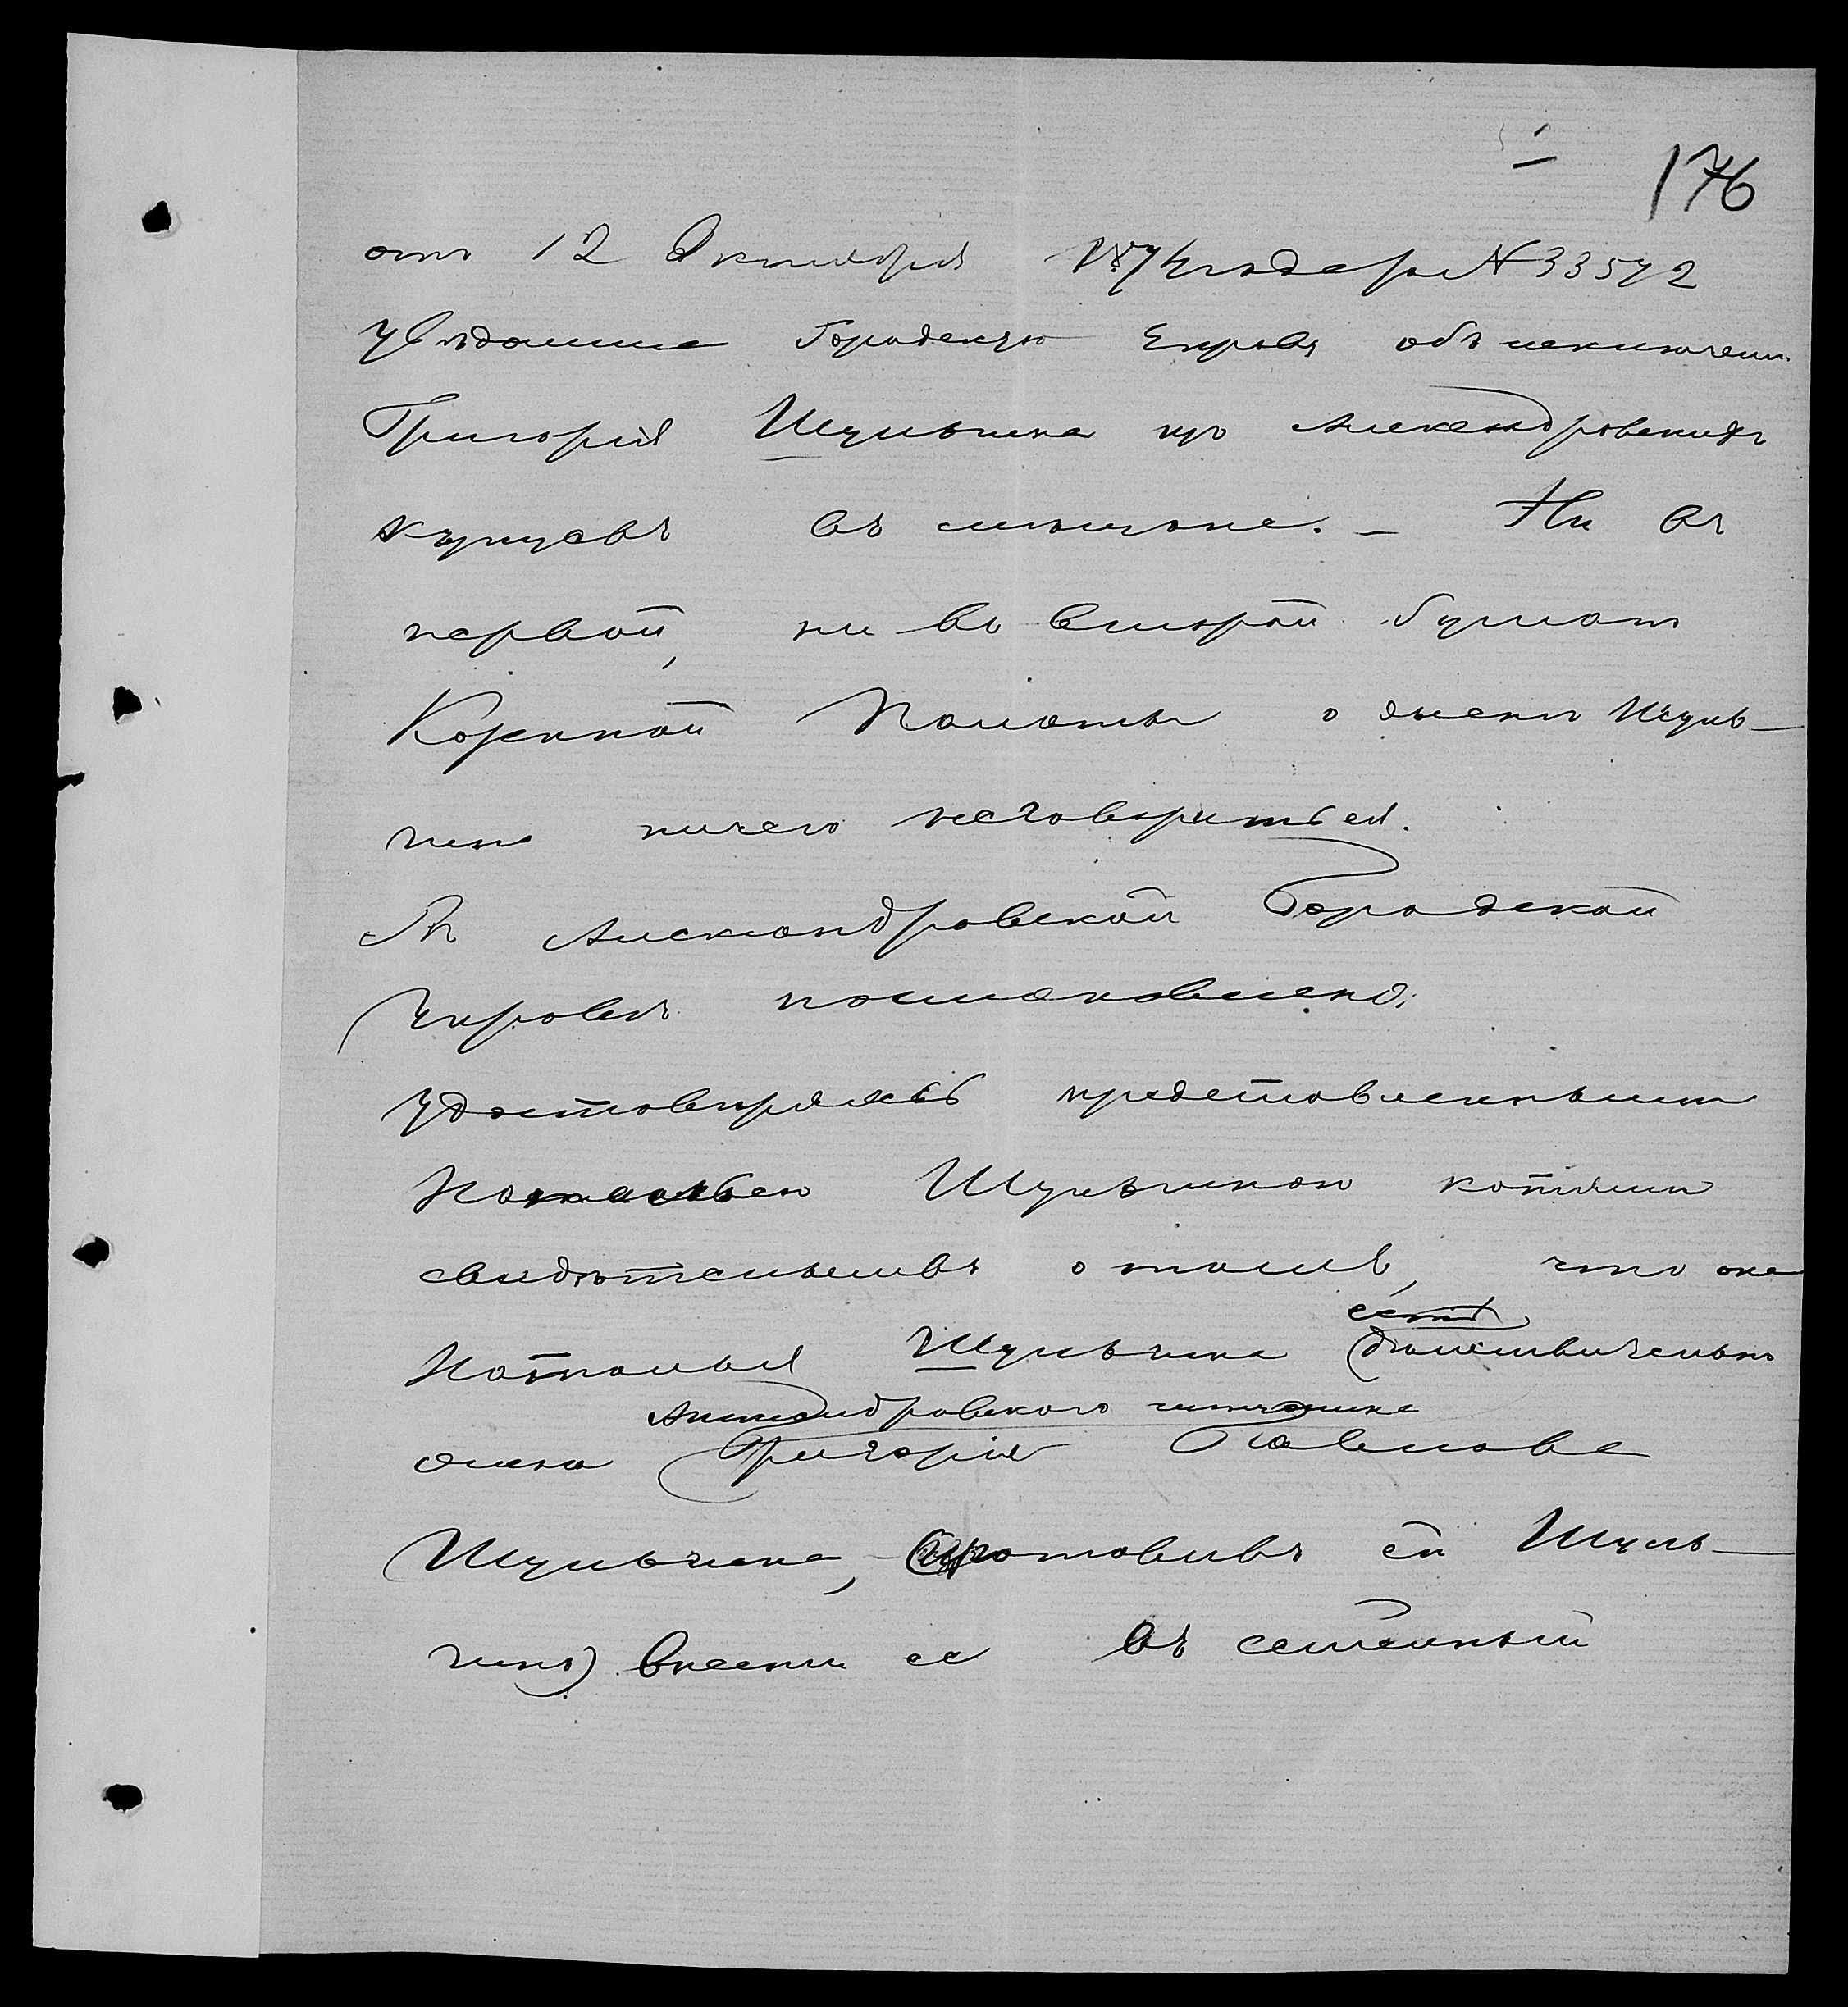 176
отъ 12 Октября 1874 года за № 33572
увѣдомила Городскую Управу объ исключеніи
Григорія Шульчина изъ Александровскихъ
купцовъ въ мѣщане. — Ни въ
первой, ни во второй бумагѣ
Казенной Палаты о женѣ Шуль-
чина ничего неговорится.
Въ Александровской Городской
Управѣ постановлено:
удостовѣрясь представленнымъ
Натальею Шульчиною копіями
свидѣтельствъ о томъ, что она
Наталья Шульчина есть дѣйствительно
Александровскаго мѣщанина
жена Григорія Павлова
Шульчина, ей Шуль-
чина) внести ее въ семейный